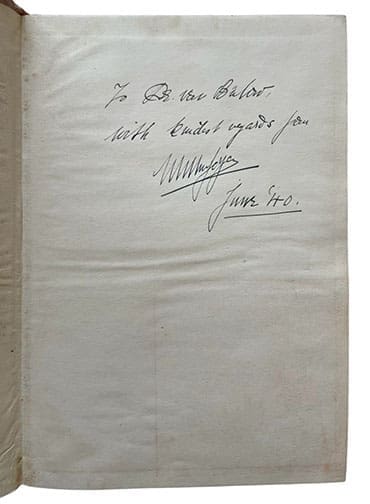 To Dr. van Bulow,
with kindest regards from
June '40.